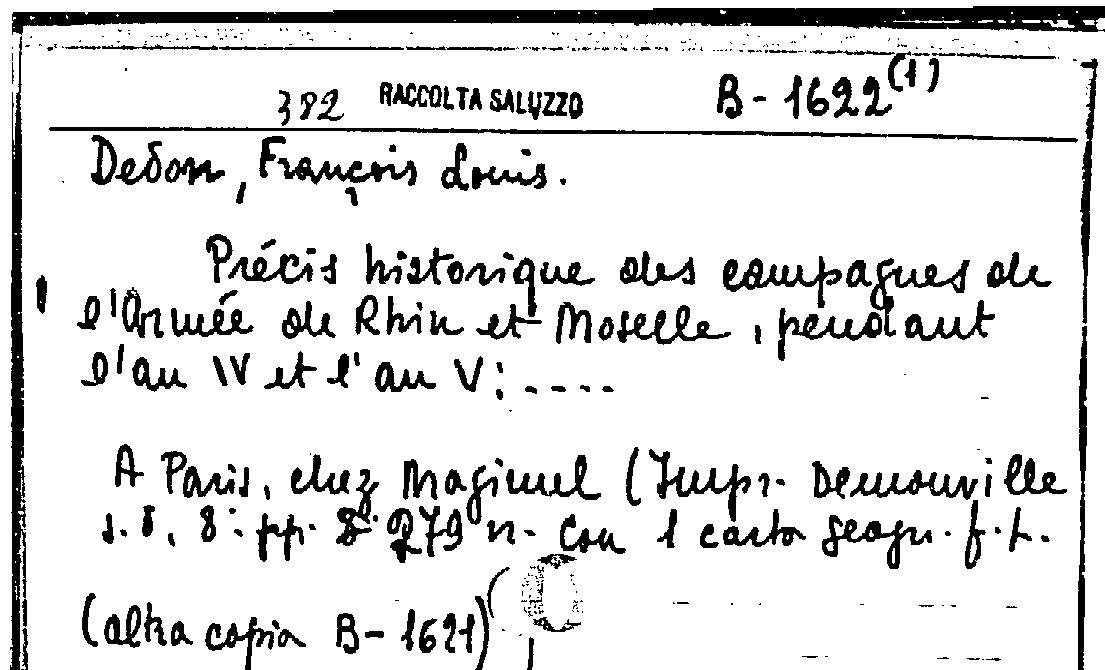 382 RACCOLTA SALUZZO B-1622(1)
Dedon, François Louis.
Précis historique des campagnes de
l'Armée de Rhin et Moselle, pendant
l'an IV et l'an V: ----
A Paris, chez Magimel (Impr. Demonville
s.d. 8°. pp. 8. 279 n. con 1 carta geogr. f.t.
(altra copia B-1621)